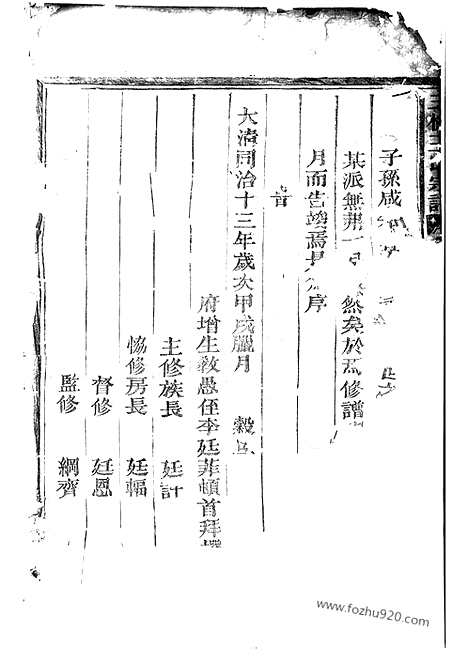 子孫咸
某派無 然矣於 修譜
月而告竣焉是 序
旹
大清同治十三年歲次甲戌臘月 穀旦
府增生教愚侄李廷菲頓首拜撰
主修族長 廷計
恊修房長 廷幅
督修 廷恩
監修 綱齊
www.fozhu920.com